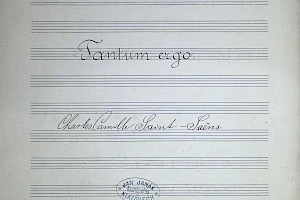 Tantum ergo
Charles Camille Saint-Saëns.